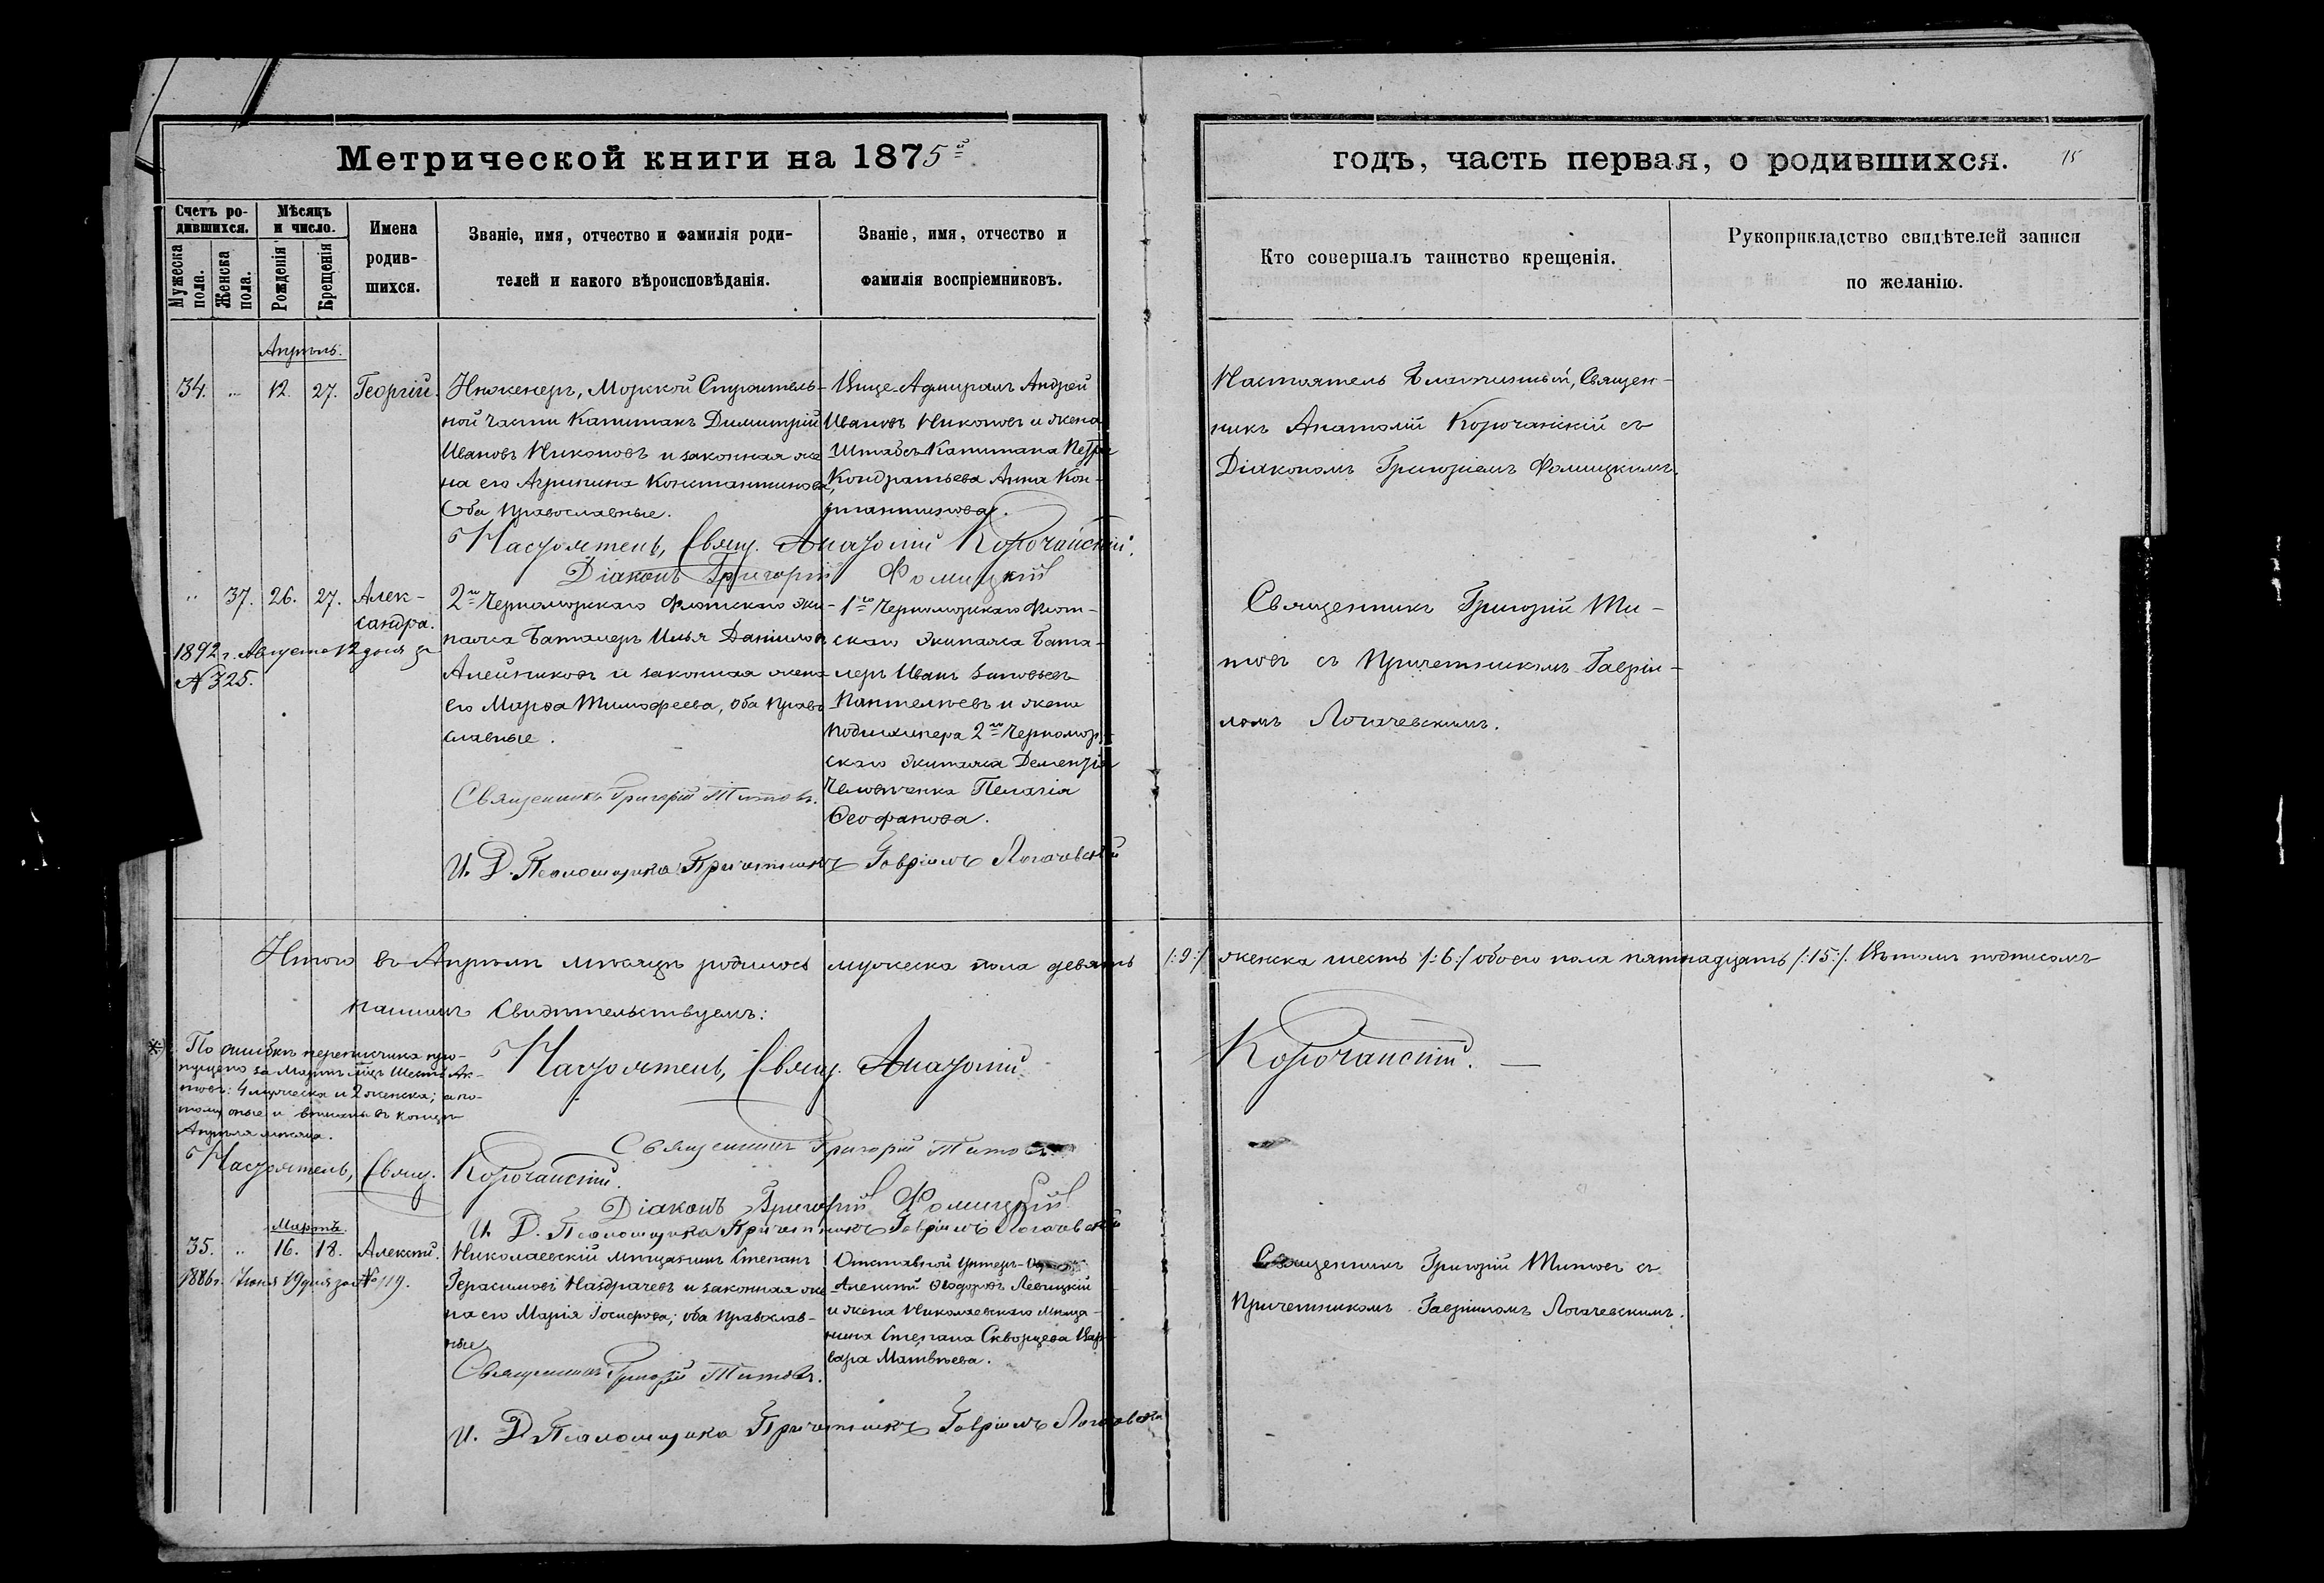 Метрической книги на 1875й
годъ, часть первая, о родившихся.
15
Счетъ ро-
дившихся.
Мужеска
пола.
Женска
пола.
Мѣсяцъ
и число.
Рожденія
Крещенія
Имена
родив-
шихся.
Званіе, имя, отчество и фамилія роди-
телей и какого вѣроисповѣданія.
Званіе, имя, отчество и
фамилія воспріемниковъ.
Кто совершалъ таинство крещенія.
Рукоприкладство свидѣтелей записи
по желанію.
Апрѣль.
34. " 12. 27. Георгій.
Инженеръ, Морской Строитель-
ной части Капитанъ Димитрій
Ивановъ Никоновъ и законная же
на его Агрипина Константинова
Оба православные.
Вице-Адмиралъ Андрей
Ивановъ Никоновъ и жена
Штабсъ-Капитана Петра
Кондратьева Анна Кон-
стантинова.
Настоятель Благочинный, Священ-
никъ Анатолій Корочанскій съ
Діакономъ Григоріемъ Фомицкимъ.
Настоятель, Свящ. Анатолій Корочанскій.
Діаконъ Григорій Фомицкій
" 37. 26. 27. Алек-
сандра.
1892 г. Августа 12 дня за
№ 325.
2го Черноморскаго Флотскаго Эки-
пажа Баталеръ Илья Даниловъ
Алейниковъ и законная жена
его Марфа Тимофеева, оба право
славные.
1го Черноморскаго Флот-
скаго Экипажа Бата-
леръ Иванъ Зиновьевъ
Пантелѣевъ и жена
подшкипера 2го Черномор-
скаго Экипажа Дементія
Пелагія
Феофанова.
Священникъ Григорій Ти-
товъ съ Причетникомъ Гавріи-
ломъ Логачевскимъ.
Священникъ Григорій Титовъ.
И. Д. Псаломщика Причетникъ Гавріилъ Логачевскій
Итого въ Апрѣлѣ мѣсяцѣ родилось мужеска пола девять /:9:/ женска шесть /:6:/ обоего пола пятнадцать /:15:/. Въ томъ подписомъ
нашимъ Свидѣтельствуемъ:
Настоятель, Свящ. Анатолій Корочанскій.
*) По ошибкѣ переписчика про-
пущено за Мартъ мцъ шесть Ак-
товъ: 4 мужеска и 2 женска; а по-
тому оные и вписаны въ концѣ
Апрѣля мѣсяца.
Настоятель, Свящ. Корочанскій.
Священникъ Григорій Титовъ.
Діаконъ Григорій Фомицкій
И. Д. Псаломщика Причетникъ Гавріилъ Логачевскій
Мартъ.
35. " 16. 18. Алексій.
1886 г. Іюня 19 дня за № 119.
Николаевскій мѣщанинъ Степанъ
Герасимовъ Наздрачевъ и законная же
на его Марія Іосифова; оба православ-
ные.
Отставной Унтеръ-
Алексій Феодоровъ Левицкій
и жена Николаевскаго мѣща-
нина Степана Скворцова Вар-
вара Матвѣева.
Священникъ Григорій Титовъ съ
Причетникомъ Гавріиломъ Логачевскимъ.
Священникъ Григорій Титовъ.
И. Д. Псаломщика Причетникъ Гавріилъ Логачевскій